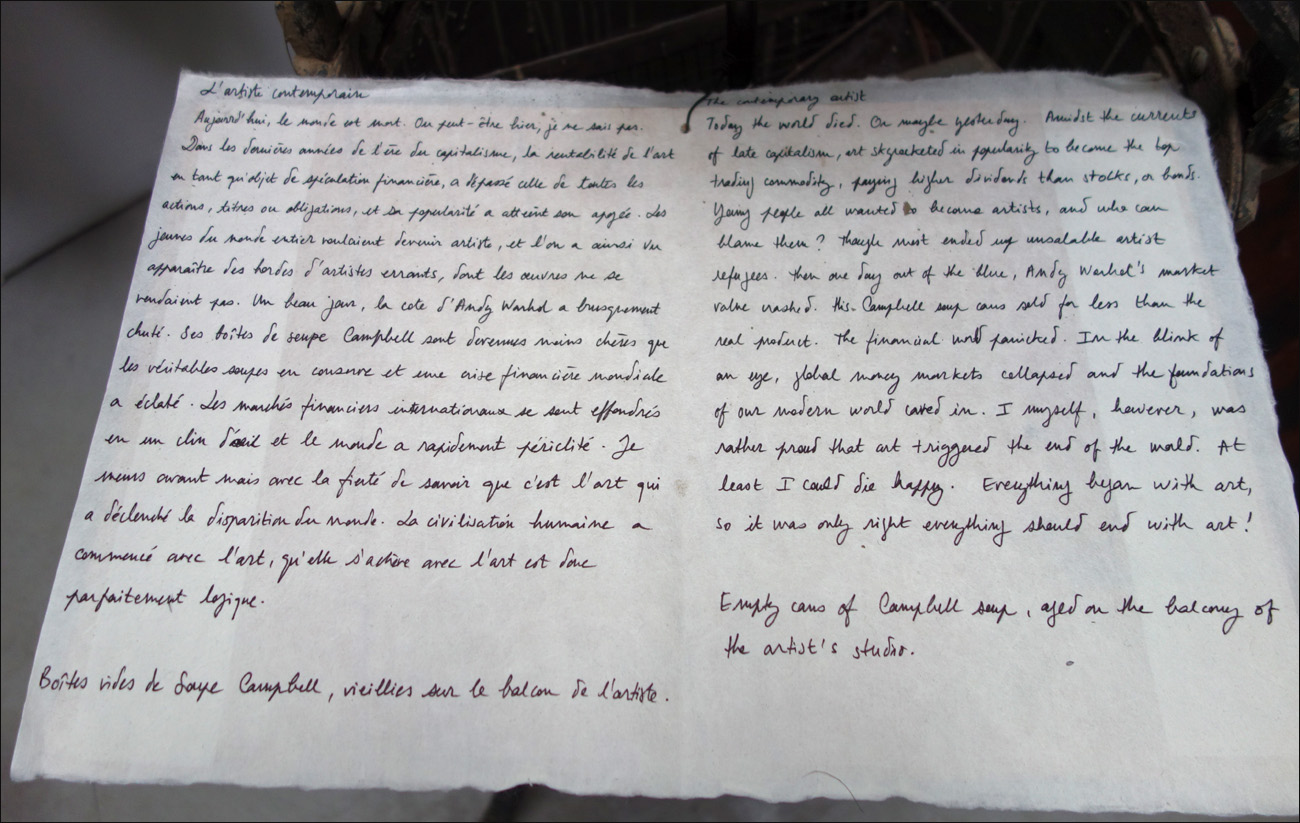 L'artiste contemporain
Aujourd'hui, le monde est mort. Ou peut-être hier, je ne sais pas.
Dans les dernières années de l'ère du capitalisme, la rentabilité de l'art
en tant qu'objet de spéculation financière, a dépassé celle de toutes les
actions, titres ou obligations, et sa popularité a atteint son apogée. Les
jeunes du monde entier voulaient devenir artiste, et l'on a ainsi vu
apparaître des hordes d'artistes errants, dont les œuvres ne se
vendaient pas. Un beau jour, la cote d'Andy Warhol a brusquement
chuté. Ses boîtes de soupe Campbell sont devenues moins chères que
les véritables soupes en conserve et une crise financière mondiale
a éclaté. Les marchés financiers internationaux se sont effondrés
en un clin d'œil et le monde a rapidement périclité. Je
meurs avant mais avec la fierté de savoir que c'est l'art qui
a déclenché la disparition du monde. La civilisation humaine a
commencé avec l'art, qu'elle s'achève avec l'art est donc
parfaitement logique.
Boîtes vides de Soupe Campbell, vieillies sur le balcon de l'artiste.
The contemporary artist
Today the world died. Or maybe yesterday. Amidst the currents
of late capitalism, art skyrocketed in popularity to become the top
trading commodity, paying higher dividends than stocks, or bonds.
Young people all wanted to become artists, and who can
blame them? Though most ended up unsalable artist
refugees. Then one day out of the blue, Andy Warhol's market
value crashed. His Campbell soup cans sold for less than the
real product. The financial world panicked. In the blink of
an eye, global money markets collapsed and the foundations
of our modern world caved in. I myself, however, was
rather proud that art triggered the end of the world. At
least I could die happy. Everything began with art,
so it was only right everything should end with art!
Empty cans of Campbell soup, aged on the balcony of
the artist's studio.